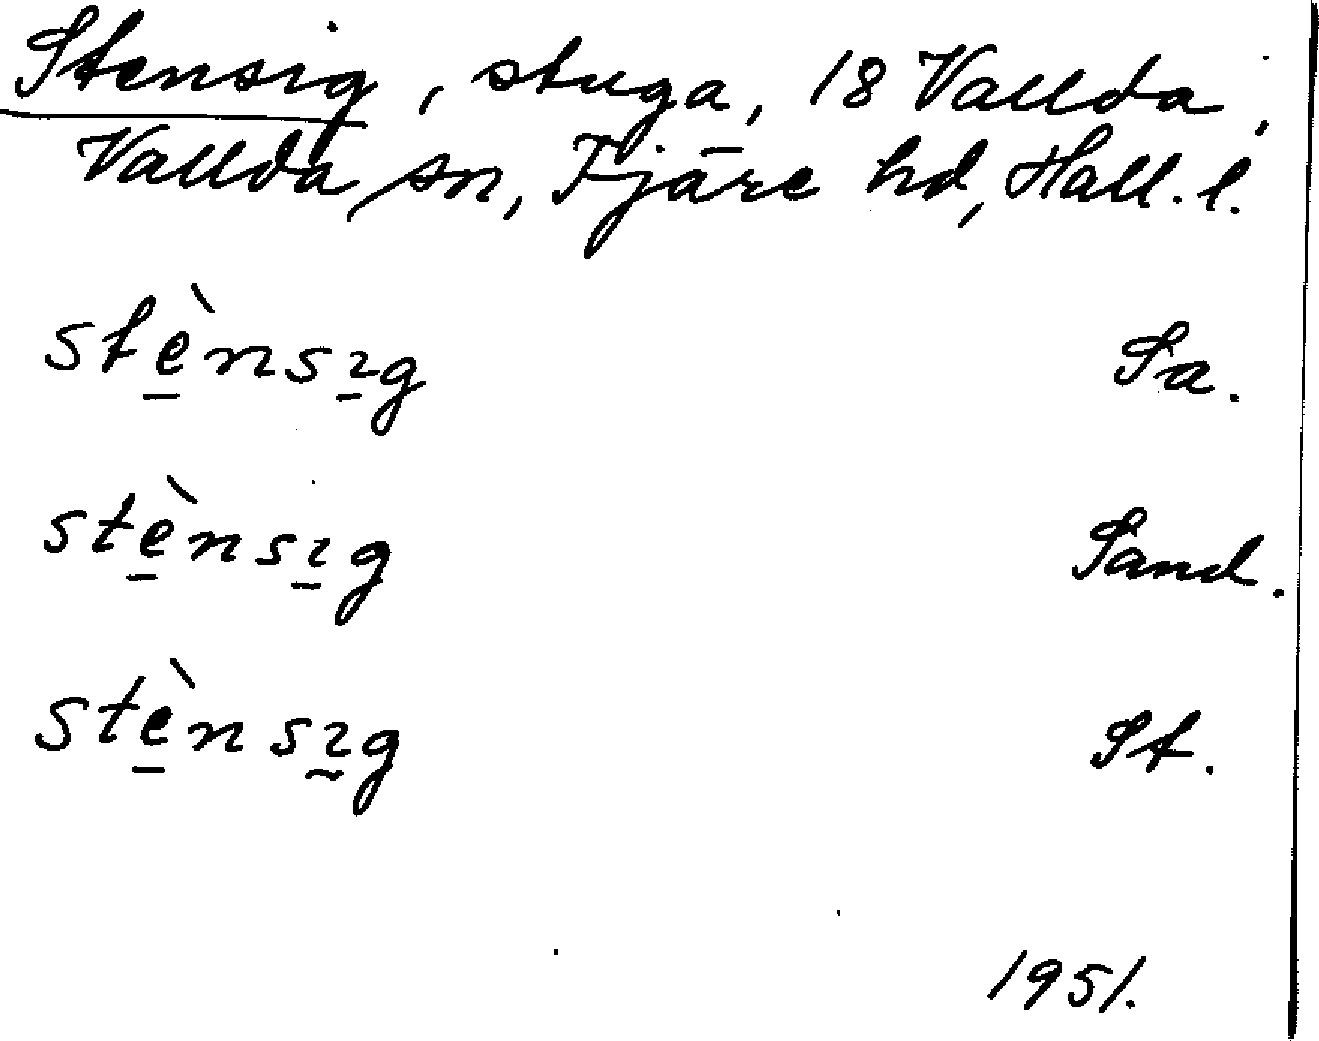 Stensig, stuga, 18 Vallda,
Vallda sn, Fjäre hd, Hall. l.
stè̱nsı̱g Sa.
stè̱nsı̱g Sand.
stè̱nsı̰g St.
1951.